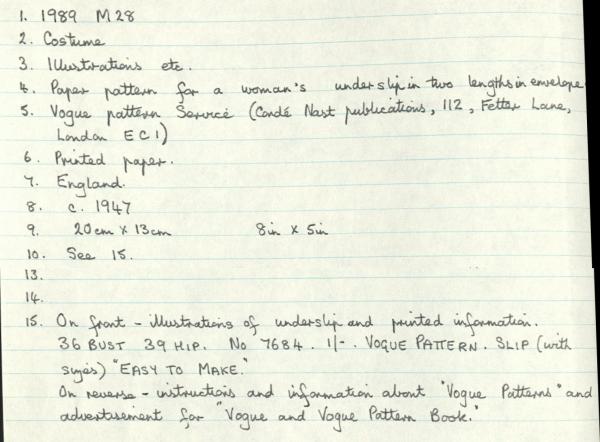 1. 1989 M28
2. Costume
3. Illustrations etc.
4. Paper pattern for a woman's underslip in two lengths in envelope
5. Vogue pattern Service (Condé Nast publications, 112, Fetter Lane,
London EC1)
6. Printed paper.
7. England.
8. c. 1947
9. 20cm x 13cm 8in x 5in
10. See 15.
13.
14.
15. On front - illustrations of underslip and printed information.
36 BUST 39 HIP. No 7684. 1/-. VOGUE PATTERN. SLIP (with
"EASY TO MAKE."
On reverse - instructions and information about "Vogue Patterns" and
advertisement for "Vogue and Vogue Pattern Book."